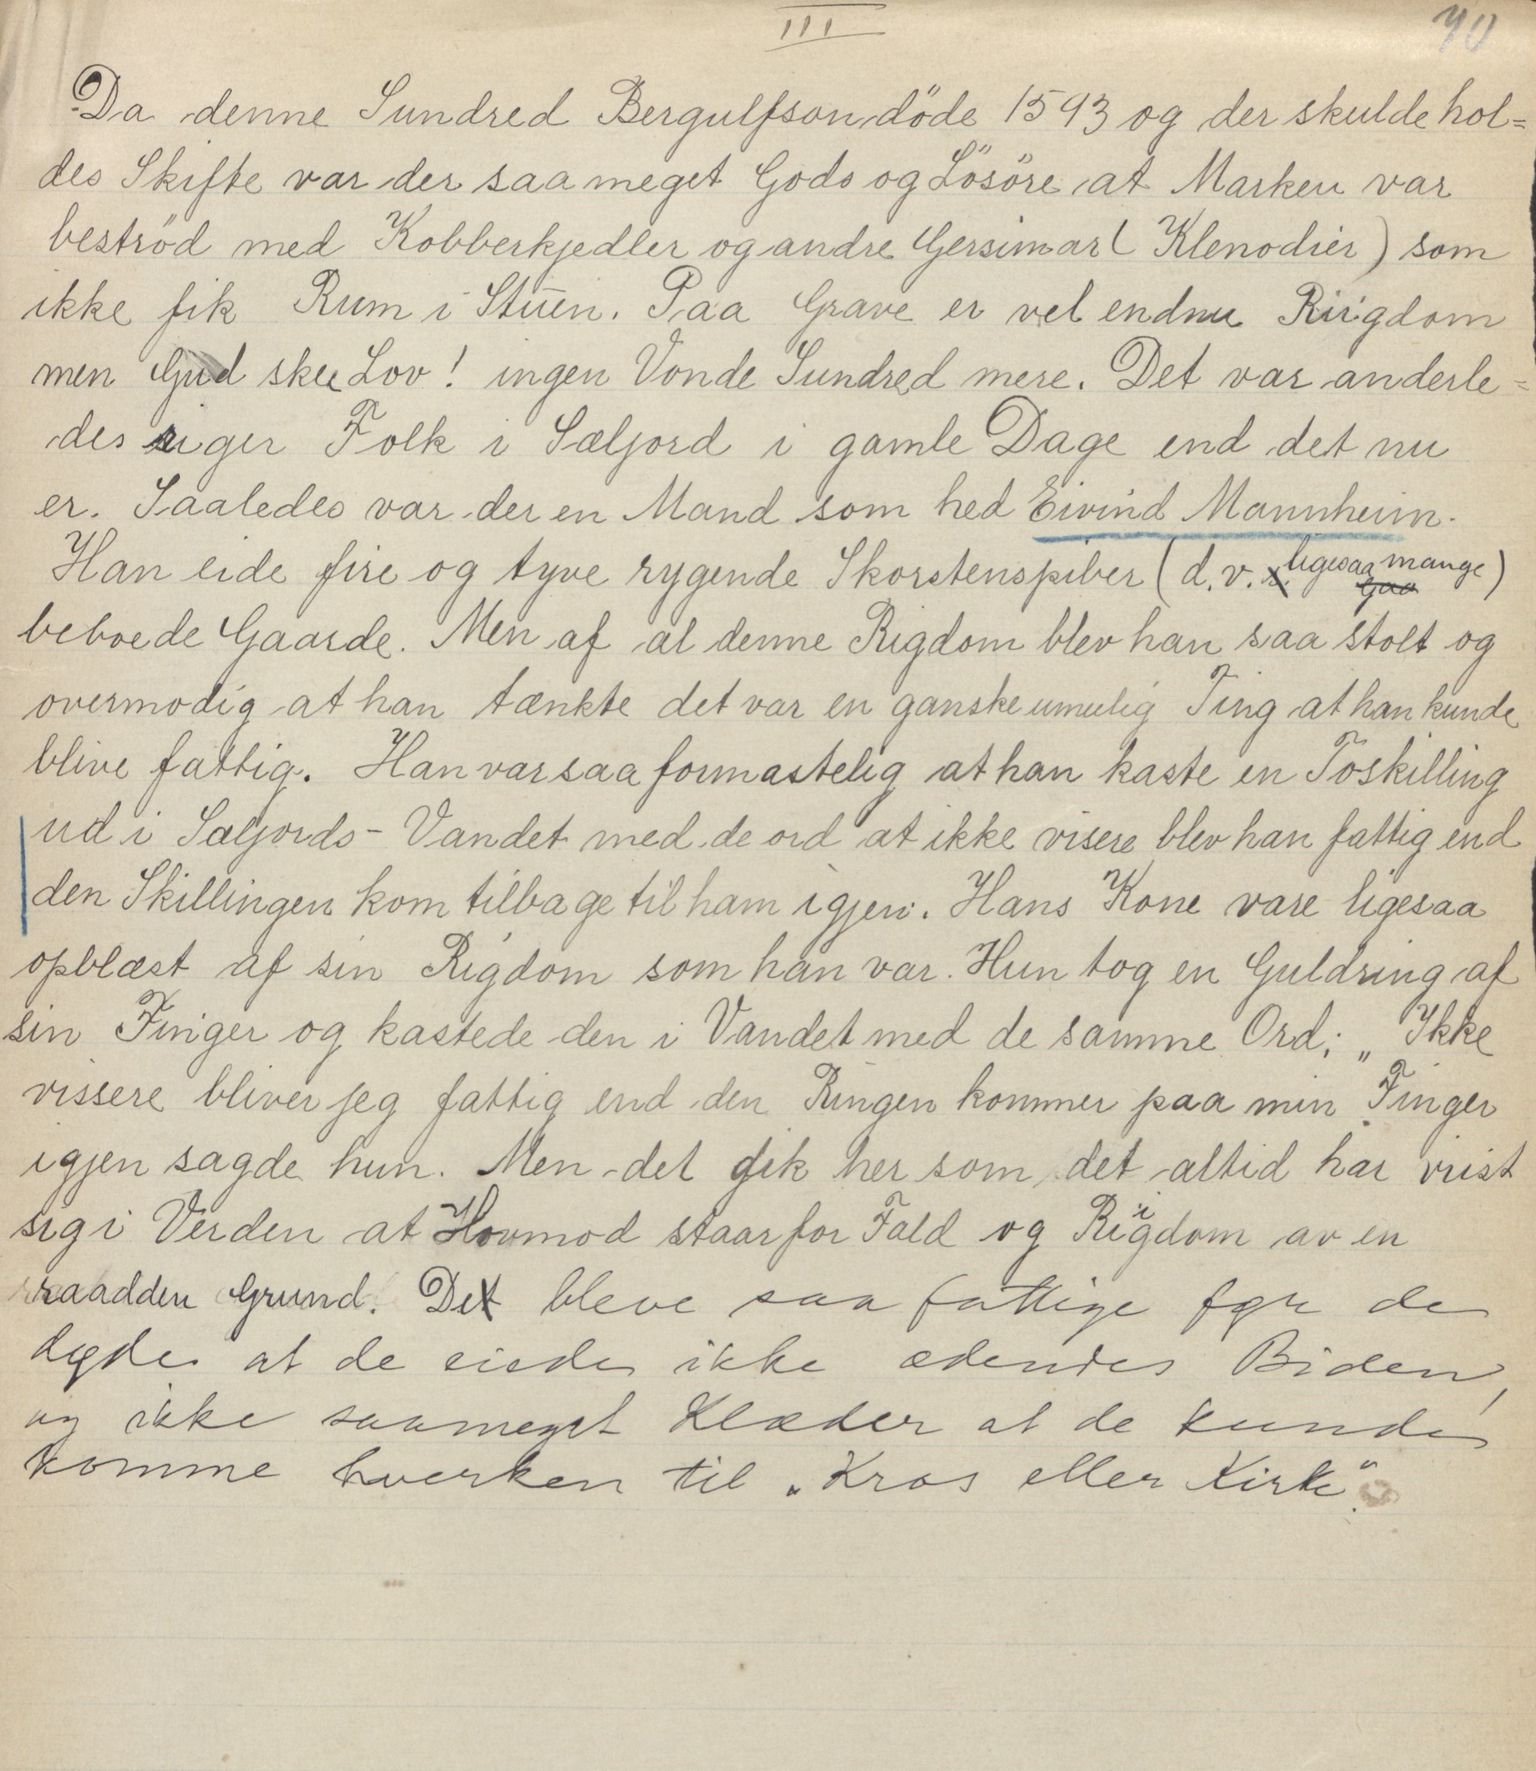 III
70
Da denne Sundred Bergulfson döde 1593 og der skulde hol=
des Skifte var der saa meget Gods og Lösöre at Marken var
beströd med Kobberkjedler og andre Gersimar ( Klenodier ) som
ikke fik Rum i Stuen. Paa Grave er vel endnu Riigdom
men Gud skee Lov! ingen Vonde Sundred mere. Det var anderle=
des riger Folk i Sæljord i gamle Dage end det nu
er. Saaledes var der en Mand som hed Eivind Mannheim.
Han eide fire og tyve rygende Skorstenspiber ( d. v. s. ligesaa mange )
beboede Gaarde. Men af al denne Rigdom blev han saa stolt og
overmodig at han tænkte det var en ganske umulig Ting at han kunde
blive fattig. Han var saa formastelig at han kaste en Toskilling
ud i Sæljords-Vandet med de ord at ikke visere blev han fattig end
den Skillingen kom tilbage til ham igjen. Hans Kone vare ligesaa
opblæst af sin Rigdom som han var. Hun tog en Guldring af
sin Finger og kastede den i Vandet med de samme Ord; „ Ikke
vissere bliver jeg fattig end den Ringen kommer paa min Finger
igjen sagde hun. Men det gik her som det altid har viist
sig i Verden at Hovmod staar for Fald og Riigdom av en
raadden Grund. De bleve saa fattige før de
døde at de eiede ikke ædendes Biden,
og ikke saameget Klæder at de kunde
komme hverken til „Kros eller Kirke“.